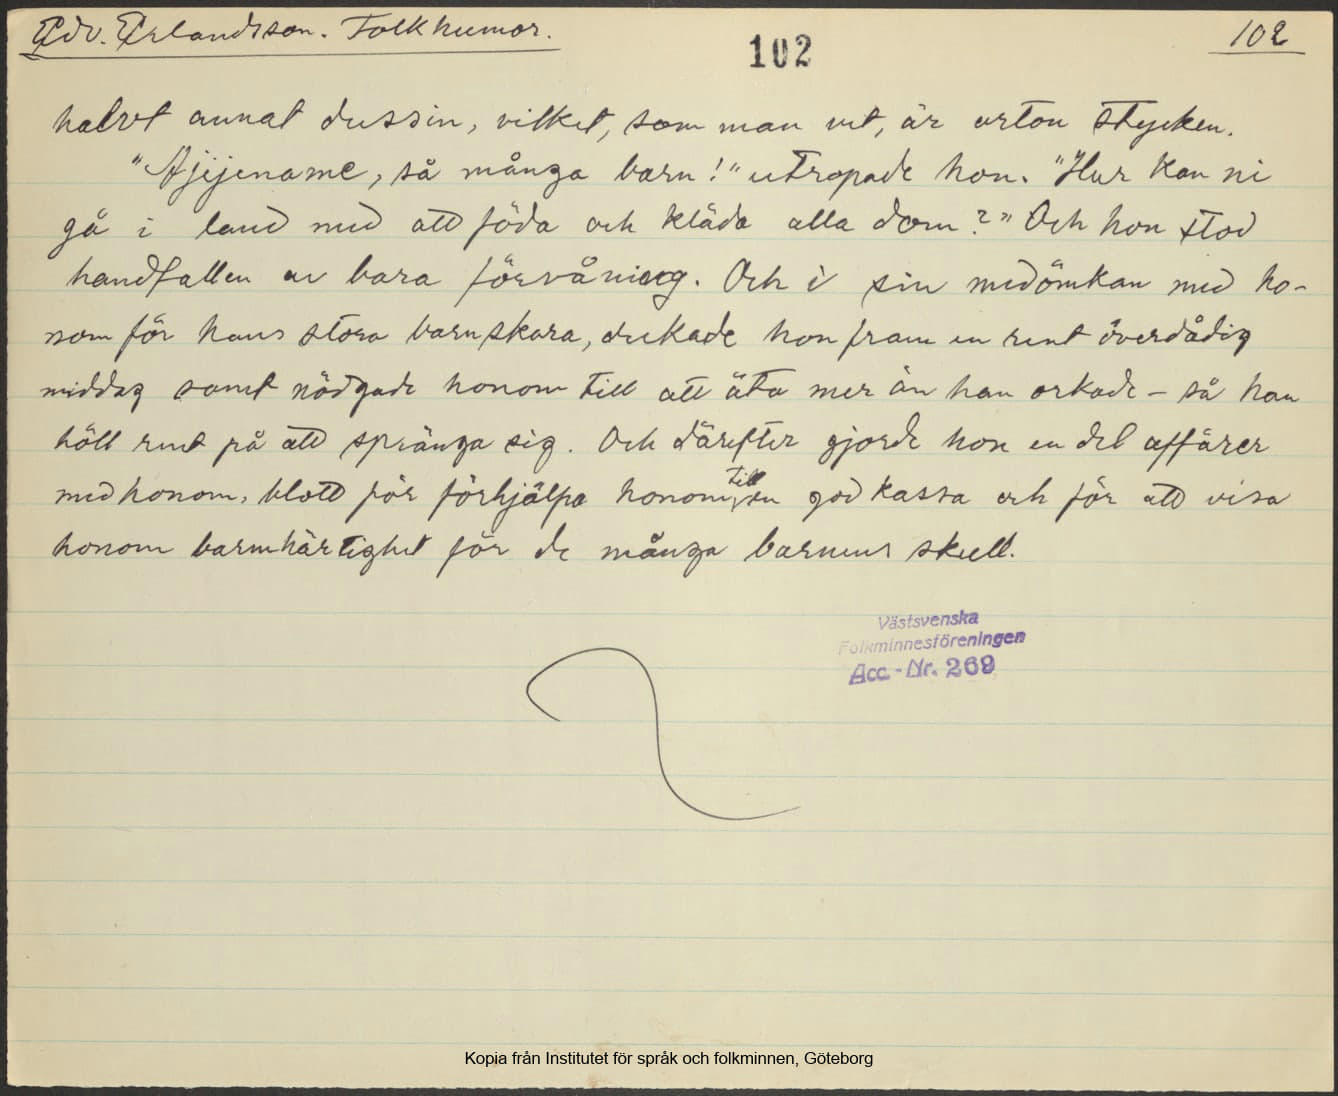 Edv. Erlandsson. Folkhumor.
102
102
halvt annat dussin, vilket, som man vet, är arton stycken.
"Ajijename, så många barn!" utropade hon. "Hur kan ni
gå i land med att föda och kläda alla dom?" Och hon stod
handfallen av bara förvåning. Och i sin medömkan med ho-
nom för hans stora barnskara, dukade hon fram en rent överdådig
middag samt nödgade honom till att äta mer än han orkade – så han
höll rent på att spränga sig. Och därefter gjorde hon en del affärer
med honom, blott för förhjälpa honom till en god kassa och för att visa
honom barmhärtighet för de många barnens skull.
Västsvenska
Folkminnesföreningen
Acc.-Nr. 269
Kopia från Institutet för språk och folkminnen, Göteborg